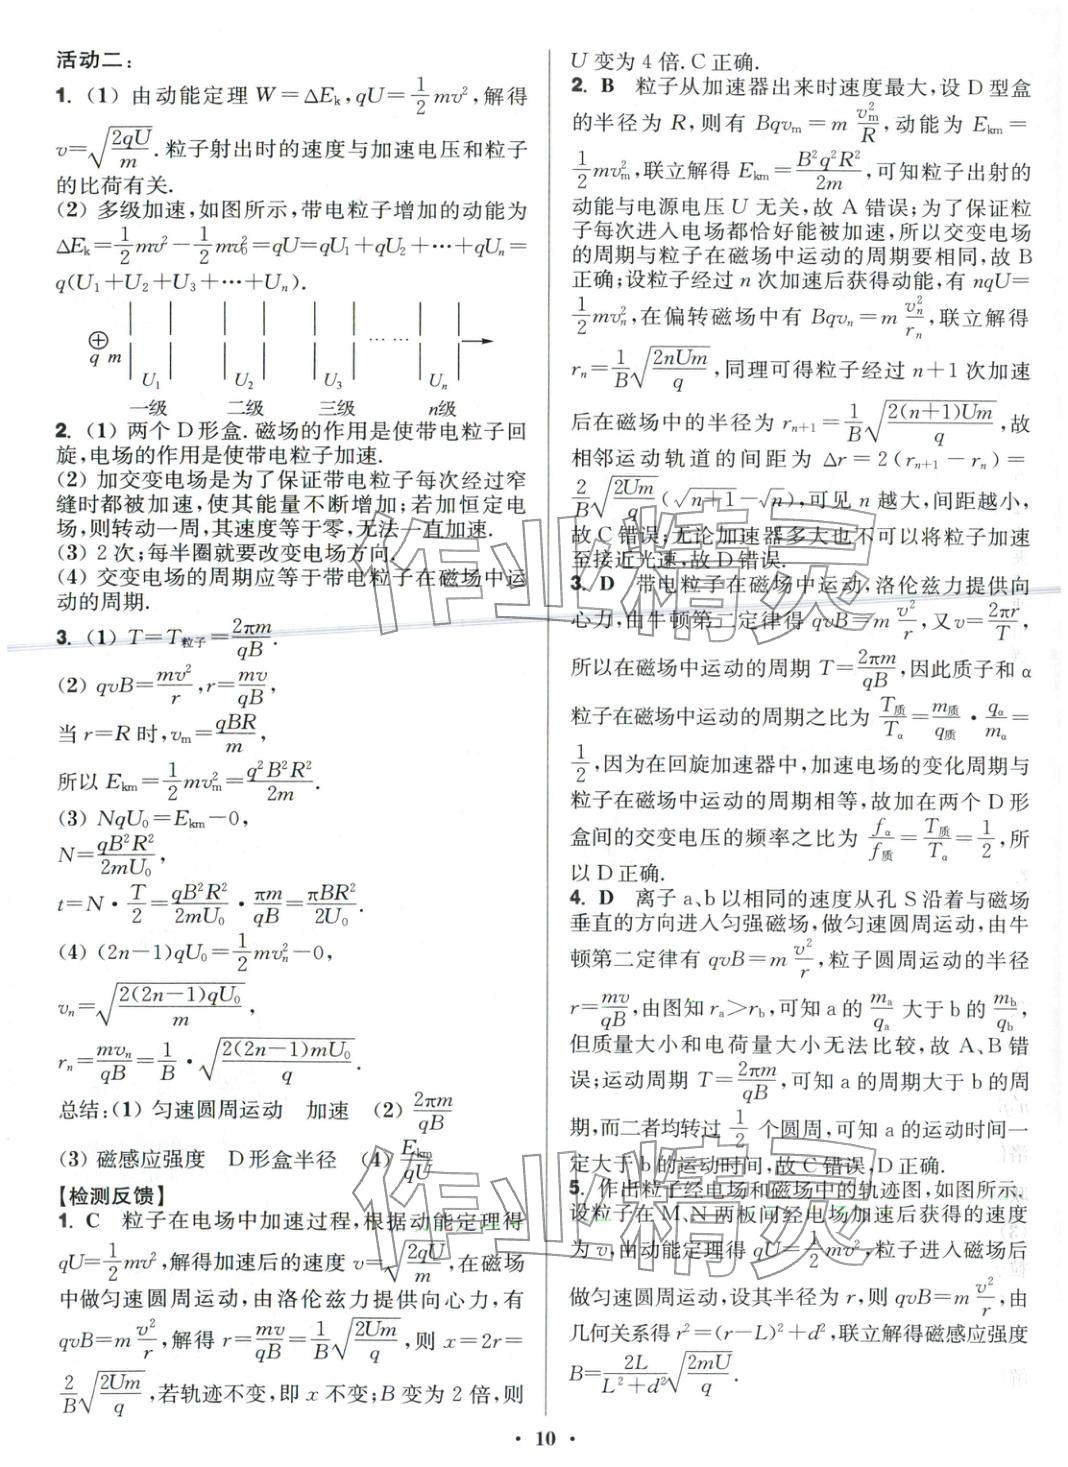 活动二：
1. (1) 由动能定理 W=ΔE_k, qU=\frac{1}{2}mv², 解得
v=\sqrt{\frac{2qU}{m}}. 粒子射出时的速度与加速电压和粒子
的比荷有关.
(2) 多级加速, 如图所示, 带电粒子增加的动能为
ΔE_k=\frac{1}{2}mv²-\frac{1}{2}mv_0²=qU=qU_1+qU_2+⋯+qU_n=
q(U_1+U_2+U_3+⋯+U_n).
⊕ q m …… 
U_1 U_2 U_3 U_n
一级 二级 三级 n级
2. (1) 两个 D 形盒. 磁场的作用是使带电粒子回
旋, 电场的作用是使带电粒子加速.
(2) 加交变电场是为了保证带电粒子每次经过窄
缝时都被加速, 使其能量不断增加; 若加恒定电
场, 则转动一周, 其速度等于零, 无法一直加速.
(3) 2 次; 每半圈就要改变电场方向.
(4) 交变电场的周期应等于带电粒子在磁场中运
动的周期.
3. (1) T=T_{粒子}=\frac{2πm}{qB}.
(2) qvB=\frac{mv²}{r}, r=\frac{mv}{qB},
当 r=R 时, v_m=\frac{qBR}{m},
所以 E_{km}=\frac{1}{2}mv_m²=\frac{q²B²R²}{2m}.
(3) NqU_0=E_{km}-0,
N=\frac{qB²R²}{2mU_0},
t=N·\frac{T}{2}=\frac{qB²R²}{2mU_0}·\frac{πm}{qB}=\frac{πBR²}{2U_0}.
(4) (2n-1)qU_0=\frac{1}{2}mv_n²-0,
v_n=\sqrt{\frac{2(2n-1)qU_0}{m}},
r_n=\frac{mv_n}{qB}=\frac{1}{B}·\sqrt{\frac{2(2n-1)mU_0}{q}}
总结: (1) 匀速圆周运动 加速 (2) \frac{2πm}{qB}
(3) 磁感应强度 D 形盒半径 (4) \frac{E_{km}}{qU}
【检测反馈】
1. C 粒子在电场中加速过程, 根据动能定理得
qU=\frac{1}{2}mv², 解得加速后的速度 v=\sqrt{\frac{2qU}{m}}, 在磁场
中做匀速圆周运动, 由洛伦兹力提供向心力, 有
qvB=m\frac{v²}{r}, 解得 r=\frac{mv}{qB}=\frac{1}{B}\sqrt{\frac{2Um}{q}}, 则 x=2r=
\frac{2}{B}\sqrt{\frac{2Um}{q}}, 若轨迹不变, 即 x 不变; B 变为 2 倍, 则
U 变为 4 倍. C 正确.
2. B 粒子从加速器出来时速度最大, 设 D 型盒
的半径为 R, 则有 Bqv_m=m\frac{v_m²}{R}, 动能为 E_{km}=
\frac{1}{2}mv_m², 联立解得 E_{km}=\frac{B²q²R²}{2m}, 可知粒子出射的
动能与电源电压 U 无关, 故 A 错误; 为了保证粒
子每次进入电场都恰好能被加速, 所以交变电场
的周期与粒子在磁场中运动的周期要相同, 故 B
正确; 设粒子经过 n 次加速后获得动能, 有 nqU=
\frac{1}{2}mv_n², 在偏转磁场中有 Bqv_n=m\frac{v_n²}{r_n}, 联立解得
r_n=\frac{1}{B}\sqrt{\frac{2nUm}{q}}, 同理可得粒子经过 n+1 次加速
后在磁场中的半径为 r_{n+1}=\frac{1}{B}\sqrt{\frac{2(n+1)Um}{q}}, 故
相邻运动轨道的间距为 Δr=2(r_{n+1}-r_n)=
\frac{2}{B}\sqrt{\frac{2Um}{q}}(\sqrt{n+1}-\sqrt{n}), 可见 n 越大, 间距越小,
故 C 错误; 无论加速器多大也不可以将粒子加速
至接近光速, 故 D 错误.
3. D 带电粒子在磁场中运动, 洛伦兹力提供向
心力, 由牛顿第二定律得 qvB=m\frac{v²}{r}, 又 v=\frac{2πr}{T},
所以在磁场中运动的周期 T=\frac{2πm}{qB}, 因此质子和 α
粒子在磁场中运动的周期之比为 \frac{T_质}{T_α}=\frac{m_质}{q_质}·\frac{q_α}{m_α}=
\frac{1}{2}, 因为在回旋加速器中, 加速电场的变化周期与
粒子在磁场中运动的周期相等, 故加在两个 D 形
盒间的交变电压的频率之比为 \frac{f_α}{f_质}=\frac{T_质}{T_α}=\frac{1}{2}, 所
以 D 正确.
4. D 离子 a、b 以相同的速度从孔 S 沿着与磁场
垂直的方向进入匀强磁场, 做匀速圆周运动, 由牛
顿第二定律有 qvB=m\frac{v²}{r}, 粒子圆周运动的半径
r=\frac{mv}{qB}, 由图知 r_a>r_b, 可知 a 的 \frac{m_a}{q_a} 大于 b 的 \frac{m_b}{q_b},
但质量大小和电荷量大小无法比较, 故 A、B 错
误; 运动周期 T=\frac{2πm}{qB}, 可知 a 的周期大于 b 的周
期, 而二者均转过 \frac{1}{2} 个圆周, 可知 a 的运动时间一
定大于 b 的运动时间, 故 C 错误, D 正确.
5. 作出粒子经电场和磁场中的轨迹图, 如图所示,
设粒子在 M、N 两板间经电场加速后获得的速度
为 v, 由动能定理得 qU=\frac{1}{2}mv², 粒子进入磁场后
做匀速圆周运动, 设其半径为 r, 则 qvB=m\frac{v²}{r}, 由
几何关系得 r²=(r-L)²+d², 联立解得磁感应强度
B=\frac{2L}{L²+d²}\sqrt{\frac{2mU}{q}}.
· 10 ·
作业精灵
作业精灵